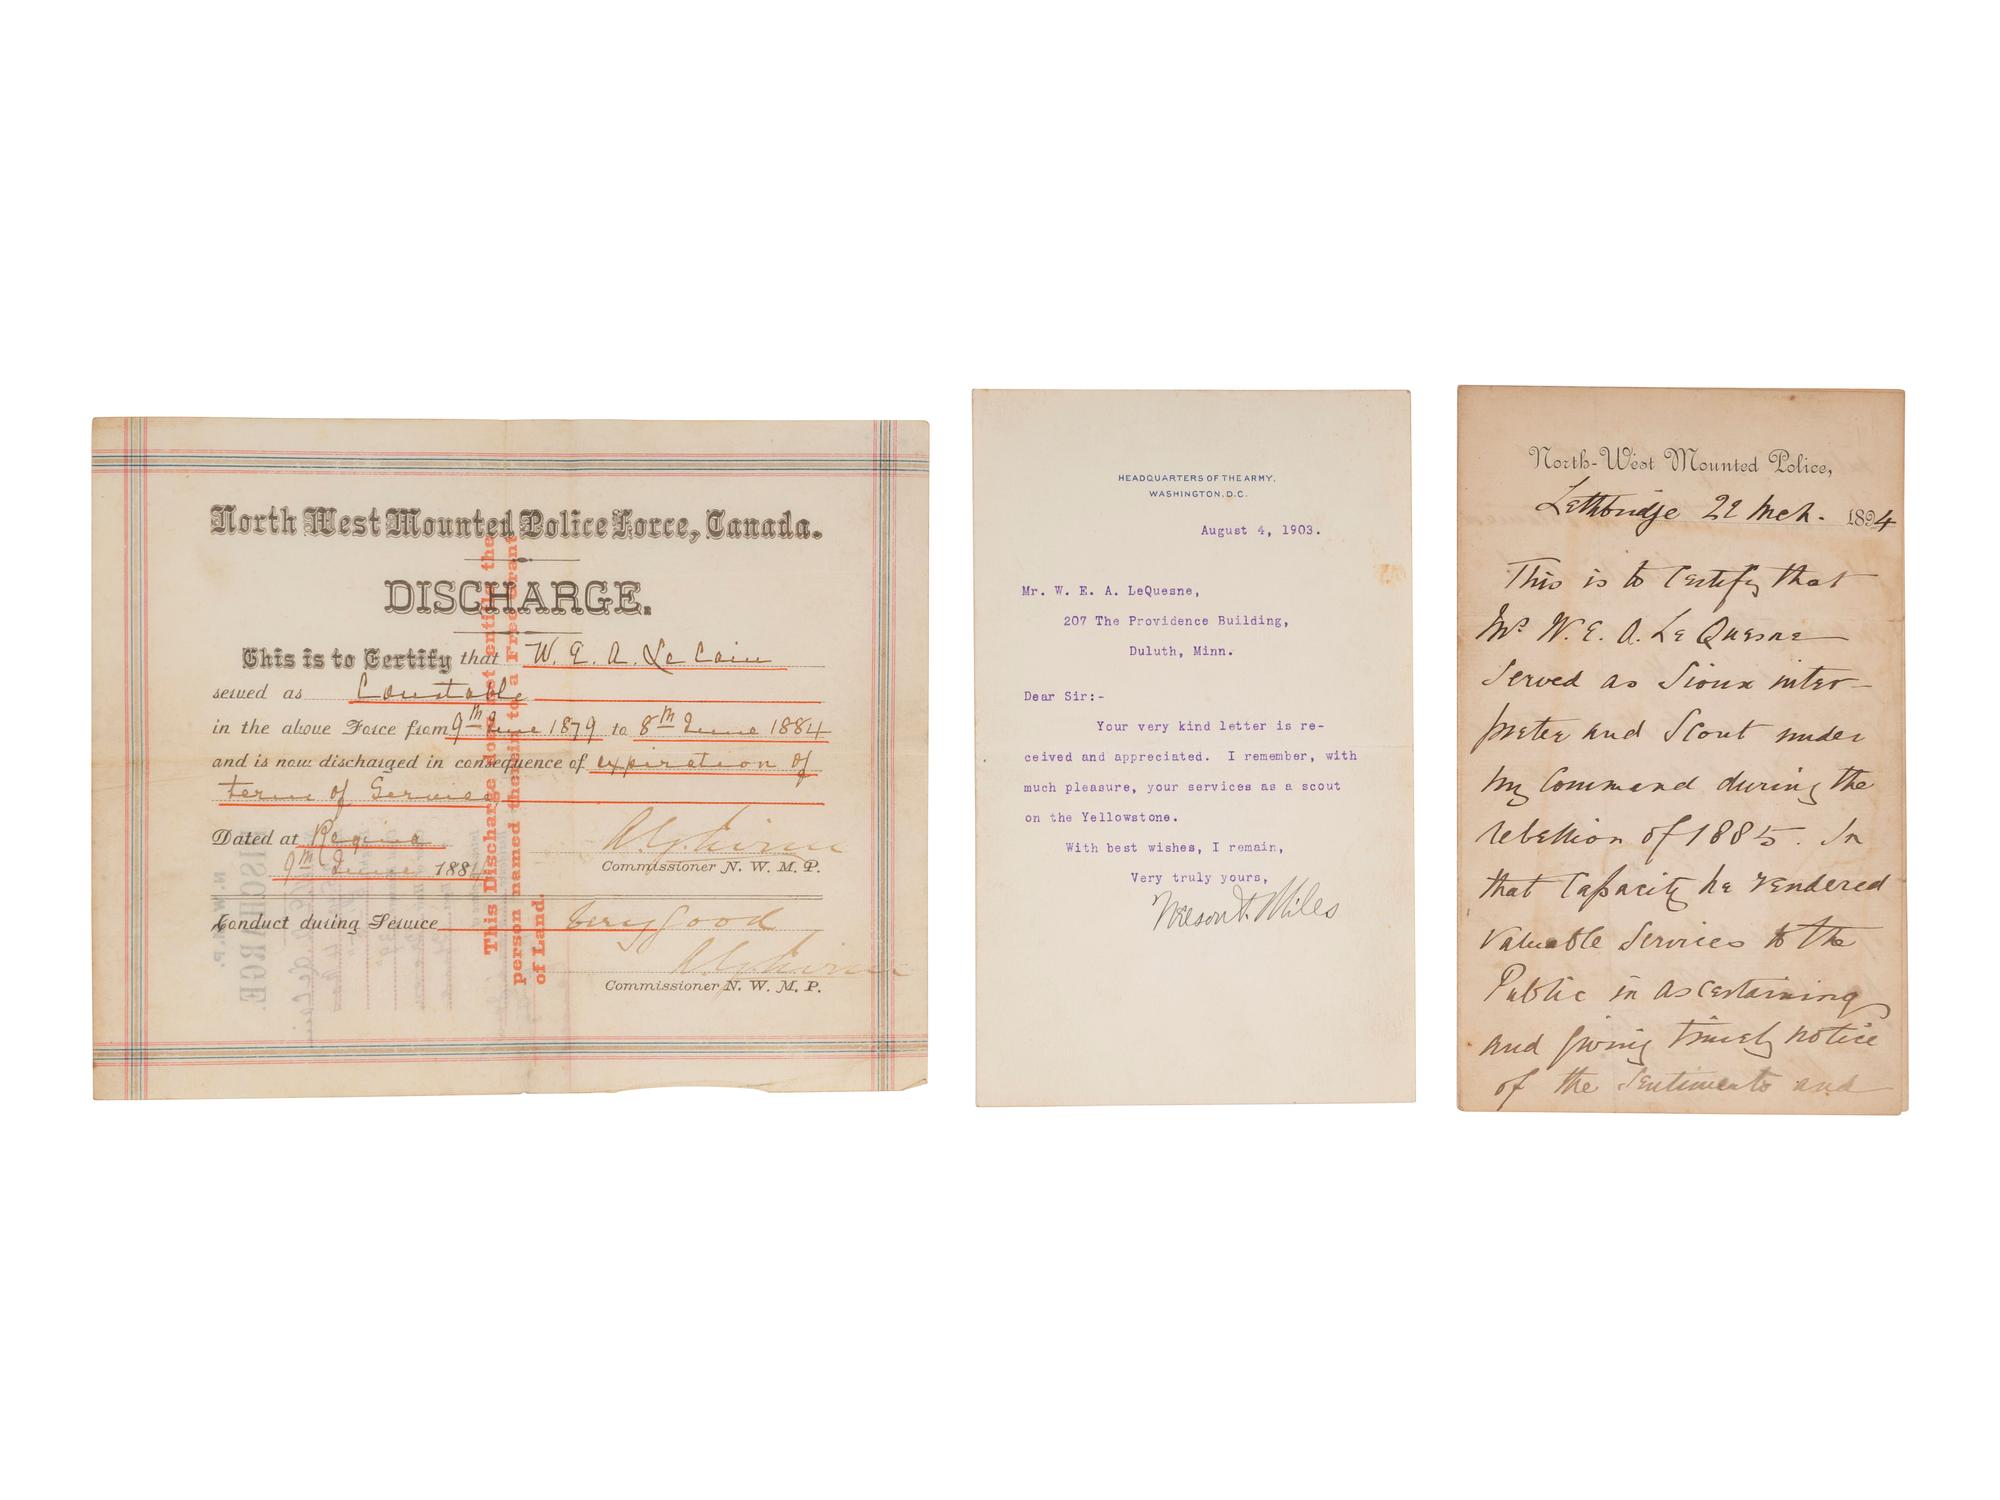 North West Mounted Police Force, Canada.
DISCHARGE.
This is to Certify that W. E. A. Le Cain
served as Constable
in the above Force from 9th June 1879 to 8th June 1884
and is now discharged in consequence of expiration of
term of Service
Dated at Regina
9th June 1884
Commissioner N. W. M. P.
Conduct during Service Very good
Commissioner N. W. M. P.
This Discharge does not entitle the
person named therein to a Free Grant
of Land.
DISCHARGE.
N. W. M. P.
HEADQUARTERS OF THE ARMY,
WASHINGTON, D.C.
August 4, 1903.
Mr. W. E. A. LeQuesne,
207 The Providence Building,
Duluth, Minn.
Dear Sir:-
Your very kind letter is re-
ceived and appreciated. I remember, with
much pleasure, your services as a scout
on the Yellowstone.
With best wishes, I remain,
Very truly yours,
Nelson A. Miles
North-West Mounted Police,
Lethbridge 22 Mch. 1894
This is to Certify that
Mr W. E. A. Le Quesne
Served as Sioux inter-
preter and Scout under
my Command during the
rebellion of 1885. In
that Capacity he rendered
Valuable Services to the
Public in ascertaining
and giving timely notice
of the Sentiments and